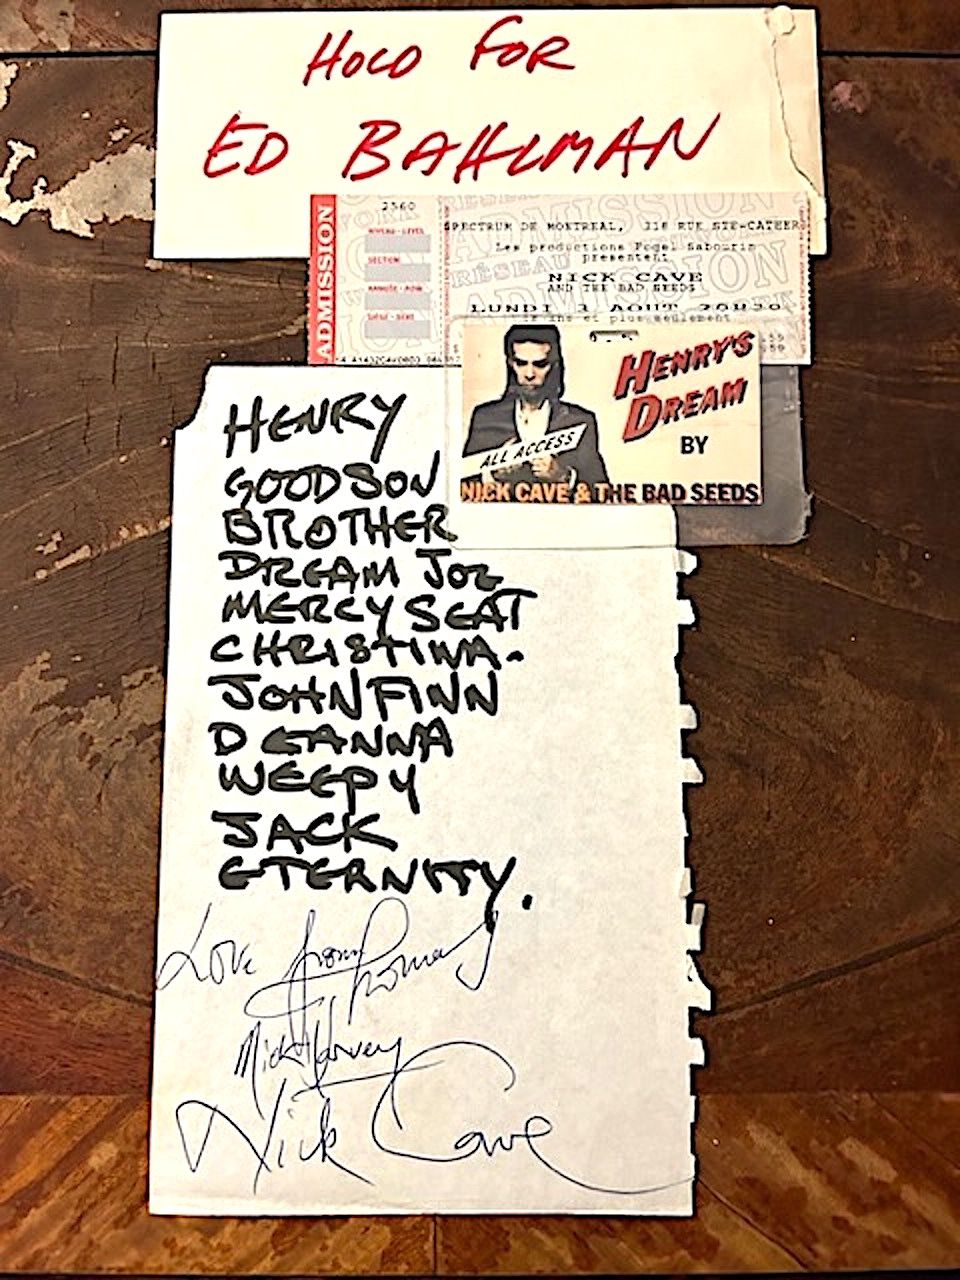 HOLD FOR
ED BAHLMAN
ADMISSION
2560
NIVEAU - LEVEL
SECTION
RANGÉE - ROW
SIÈGE - SEAT
SPECTRUM DE MONTREAL, 318 RUE STE-CATHER
Les productions Rogel Sabourin
presentent
NICK CAVE
AND THE BAD SEEDS
LUNDI 3 AOUT 20H30
ans et plus seulement
HENRY'S
DREAM
BY
ALL ACCESS
NICK CAVE & THE BAD SEEDS
HENRY
GOOD SON
BROTHER
DREAM JOE
MERCY SEAT
CHRISTINA.
JOHN FINN
DEANNA
WEEPY
JACK
ETERNITY.
Love from Thomas
Mick Harvey
Nick Cave